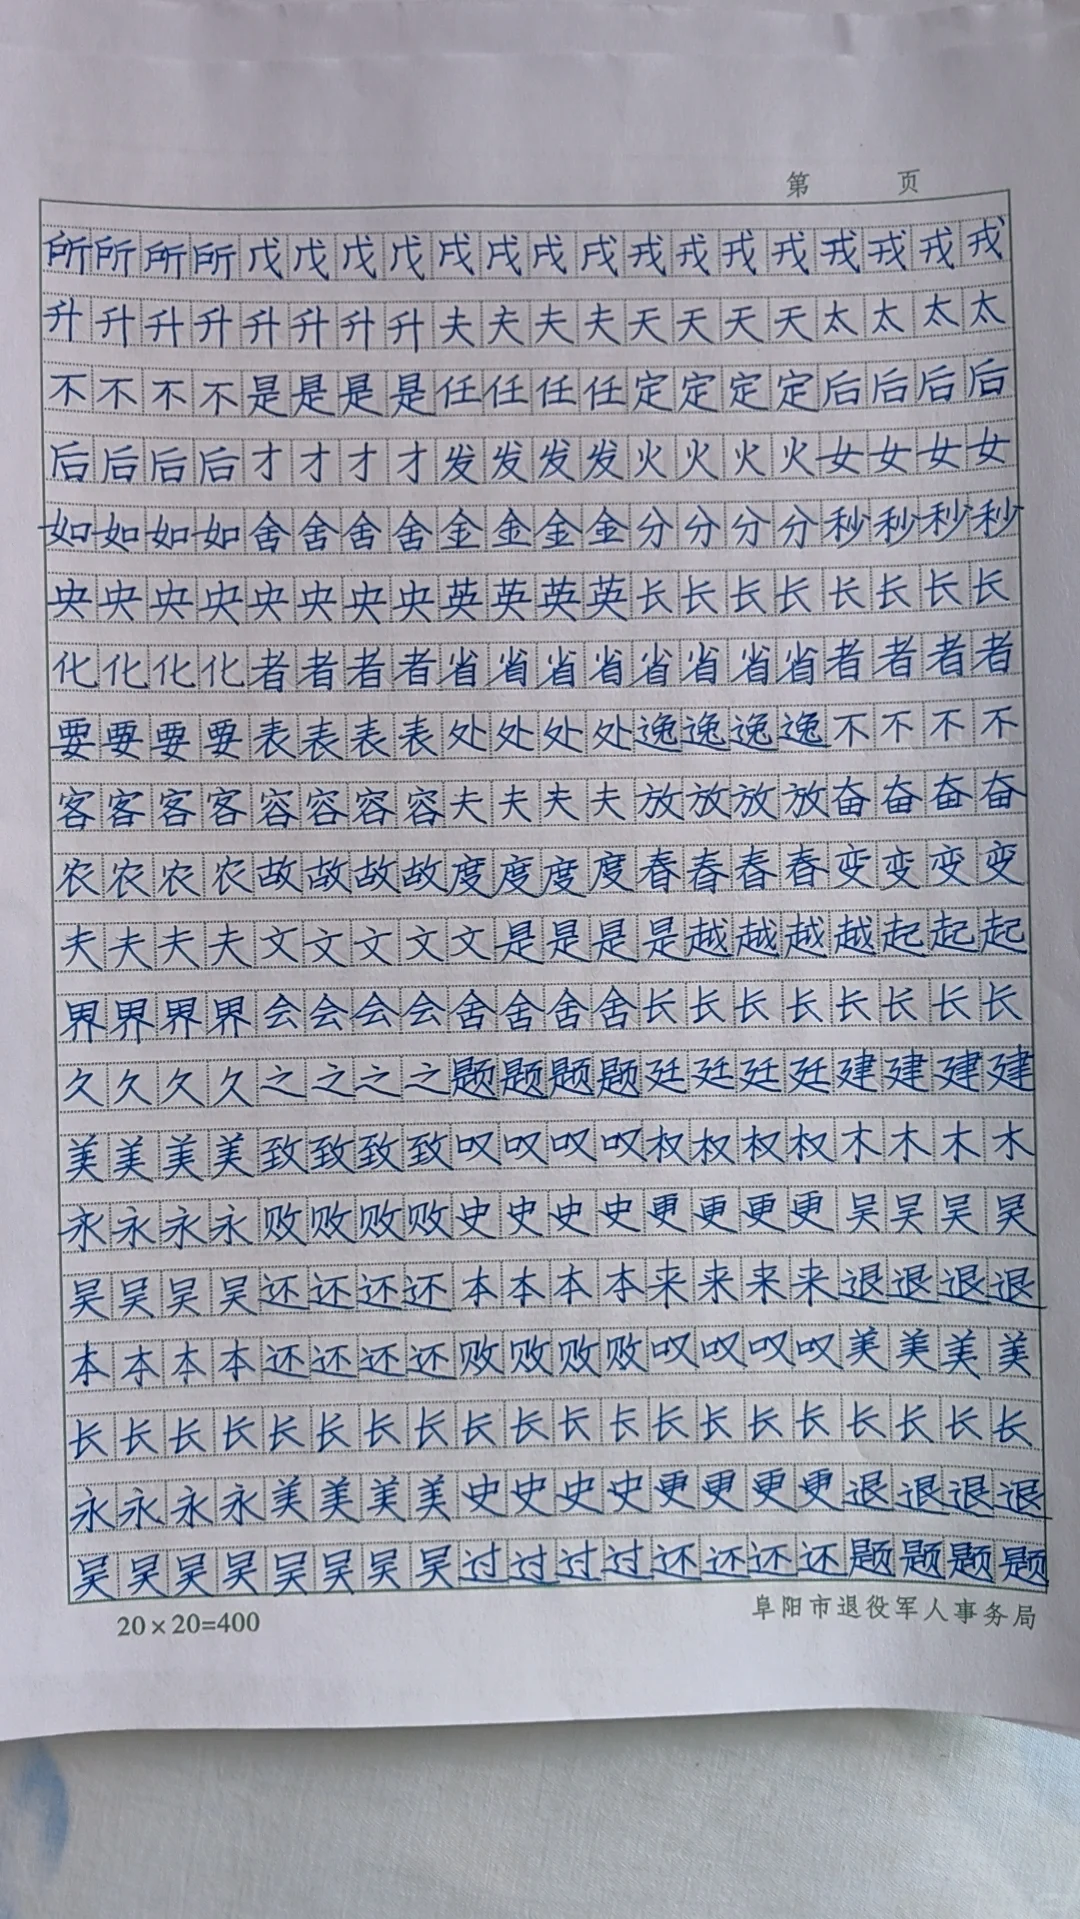 第 页
所所所所戊戊戊戊戌戌戌戌戎戎戎戎戒戒戒戒
升升升升升升升升夫夫夫夫天天天天太太太太
不不不不是是是是任任任任定定定定后后后后
后后后后才才才才发发发发火火火火女女女女
如如如如舍舍舍舍金金金金分分分分秒秒秒秒
央央央央央央央央英英英英长长长长长长长长
化化化化者者者者省省省省省省省省者者者者
要要要要表表表表处处处处逸逸逸逸不不不不
客客客客容容容容夫夫夫夫放放放放奋奋奋奋
农农农农故故故故度度度度春春春春变变变变
夫夫夫夫文文文文文是是是是越越越越起起起
界界界界会会会会舍舍舍舍长长长长长长长长
久久久久之之之之题题题题廷廷廷廷建建建建
美美美美致致致致叹叹叹叹权权权权木木木木
永永永永败败败败史史史史更更更更吴吴吴吴
吴吴吴吴还还还还本本本本来来来来退退退退
本本本本还还还还败败败败叹叹叹叹美美美美
长长长长长长长长长长长长长长长长长长长长
永永永永美美美美史史史史更更更更退退退退
吴吴吴吴吴吴吴吴过过过过还还还还题题题题
20×20=400 阜阳市退役军人事务局